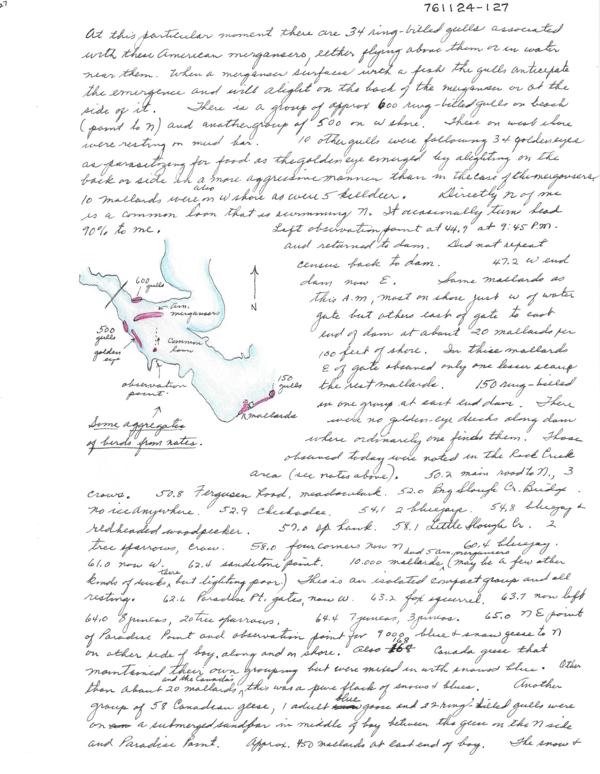 761124-127
At this particular moment there are 34 ring-billed gulls associated
with these American mergansers, either flying above them or in water
near them. When a merganser surfaces with a fish the gulls anticipate
the emergence and will alight on the back of the merganser or at the
side of it. There is a group of approx 600 ring-billed gulls on beach
(point to N) and another group of 500 on W shore. These on west shore
were resting on mud bar. 10 other gulls were following 34 goldeneyes
as parasitizing for food as the goldeneye emerged by alighting on the
back or side in a more aggressive manner than in the case of the mergansers.
10 mallards were also on W shore as were 5 killdeer. Directly N of me
is a common loon that is swimming N. It occasionally turns head
90% to me. Left observation point at 44.9 at 9:45 P.M.
and returned to dam. Did not repeat
census back to dam. 47.2 W end
dam now E. Same mallards as
this A.M., most on shore just W of water
gate but others east of gate to east
end of dam at about 20 mallards per
100 feet of shore. In these mallards
E of gate observed only one lesser scaup
the rest mallards. 150 ring-billed
in one group at east end dam. There
were no golden-eye ducks along dam
where ordinarily one finds them. Those
observed today were noted in the Rock Creek
area (see notes above). 50.2 main road to N., 3
crows. 50.8 Ferguson Road, meadowlark. 52.0 Big Slough Cr. Bridge.
no ice anywhere. 52.9 chickadee. 54.1 2 bluejays. 54.8 bluejay &
redheaded woodpecker. 57.0 sp. hawk. 58.1 Little Slough Cr. 2
tree sparrows, crow. 58.0 four corners now N. 60.4 bluejay.
61.0 now W. 62.4 sandstone point. 10,000 mallards and 5 am. mergansers (may be a few other
kinds of ducks there but lighting poor.) This is an isolated compact group and all
resting. 62.6 Paradise Pt. gates, now W. 63.2 fox squirrel. 63.7 now left
64.0 8 juncos, 20 tree sparrows. 64.4 7 juncos, 3 juncos. 65.0 NE point
of Paradise Point and observation point for 7000 blue & snow geese to N
on other side of bay, along and on shore. Also 168 Canada geese that
maintained their own grouping but were mixed in with snows & blue. Other
than about 20 mallards and the Canadas, this was a pure flock of snows & blues. Another
group of 58 Canadian geese, 1 adult blue goose and 52 ring-billed gulls were
on a submerged sandbar in middle of bay between the geese on the N side
and Paradise Point. Approx. 450 mallards at east end of bay. The snow &
600
gulls
Am.
mergansers
N
500
gulls
golden
eye
Common
loon
observation
point
150
gulls
mallards
Some aggregates
of birds from notes.